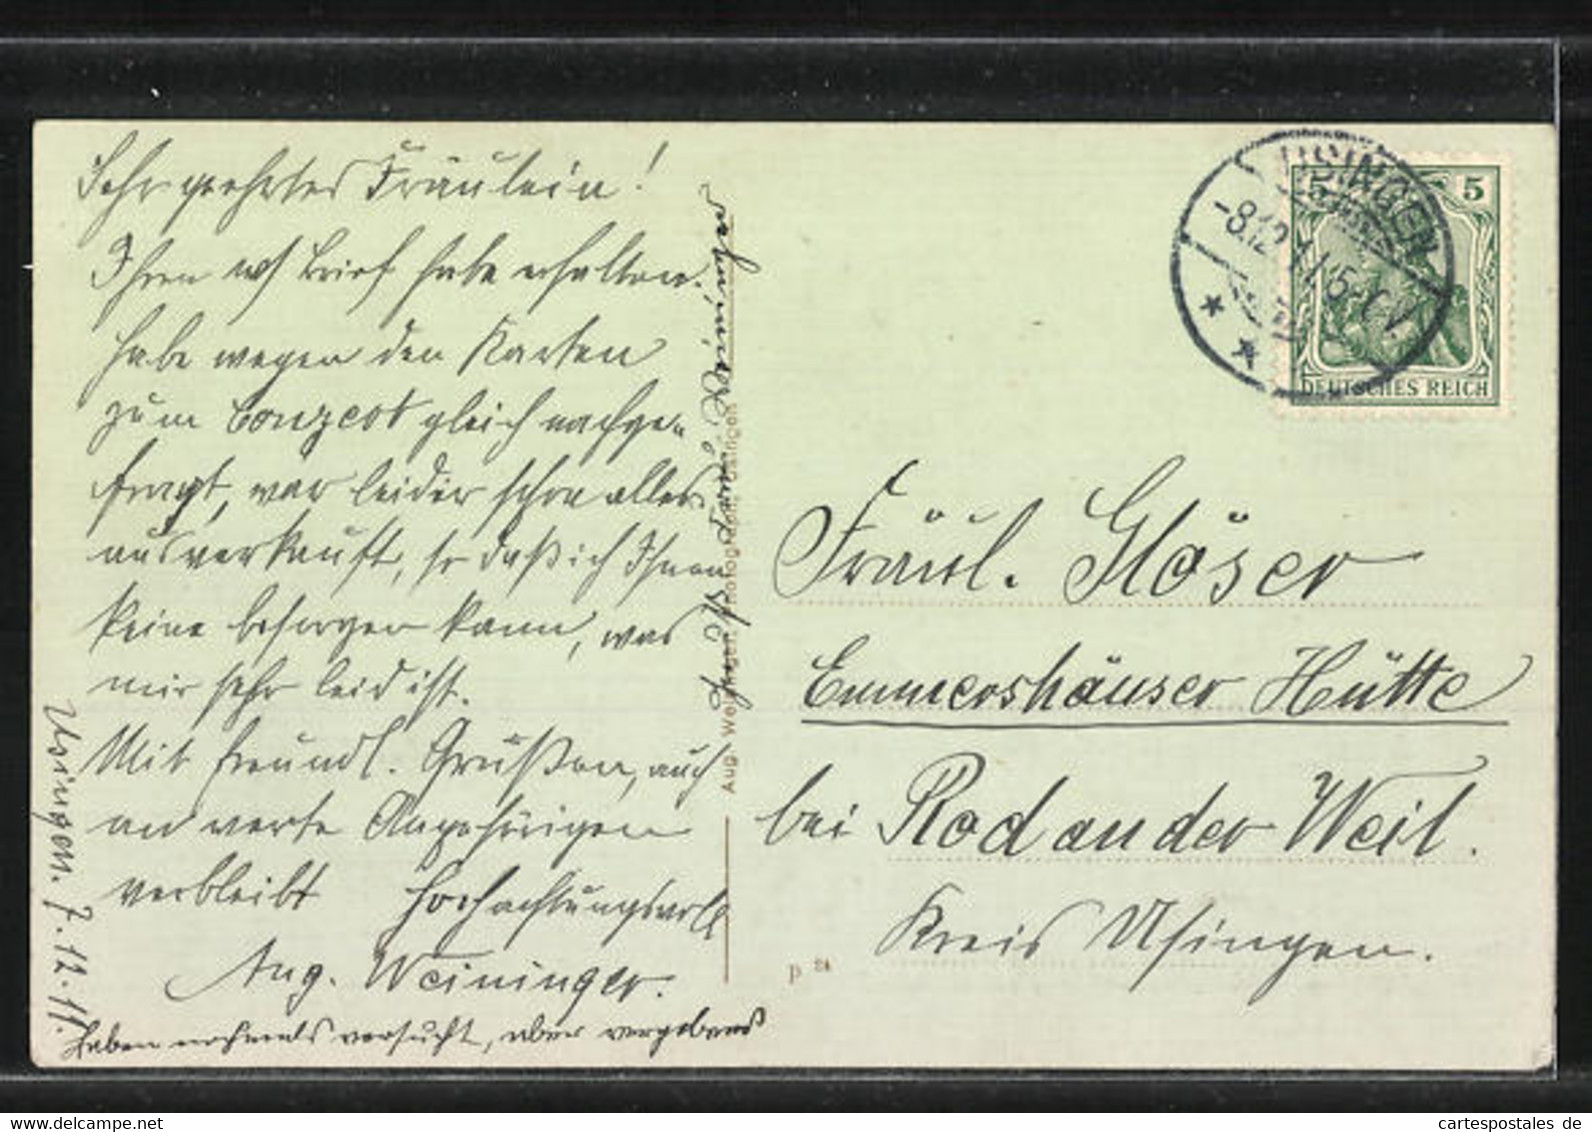 Sehr geehrtes Fräulein!
Ihren w/ Brief habe erhalten.
habe wegen den Karten
zum Conzert gleich nachge-
fragt, war leider schon alles
ausverkauft, so daß ich Ihnen
keine besorgen kann, was
mir sehr leid ist.
Mit freundl. Grüßen, auch
an werte Angehörigen
verbleibt Hochachtungsvoll
Aug. Weininger.
haben nochmals versucht, aber vergebens
Usingen. 7.12.11.
Frau Weininger
Aug. Weininger, Photograph, Usingen
USINGEN
-8.12.11.5-6N.
5 5
DEUTSCHES REICH
Fräul. Gläser
Emmershäuser Hütte
bei Rod an der Weil.
Kreis Usingen.
p 24
cartespostales.de